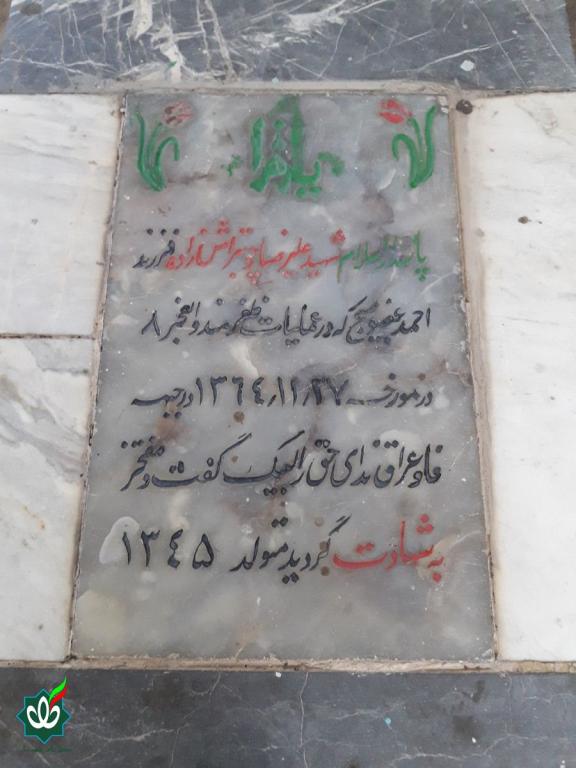 یا زهرا
پاسدار اسلام شهید علیرضا پوستتراش زاده فرزند
احمد عضو بسیج که در عملیات ظفرمند والفجر ۸
در مورخه ۱۳۶۴/۱۱/۲۷ در جبهه
فاو عراق ندای حق را لبیک گفت و مفتخر
به شهادت گردید متولد ۱۳۴۵